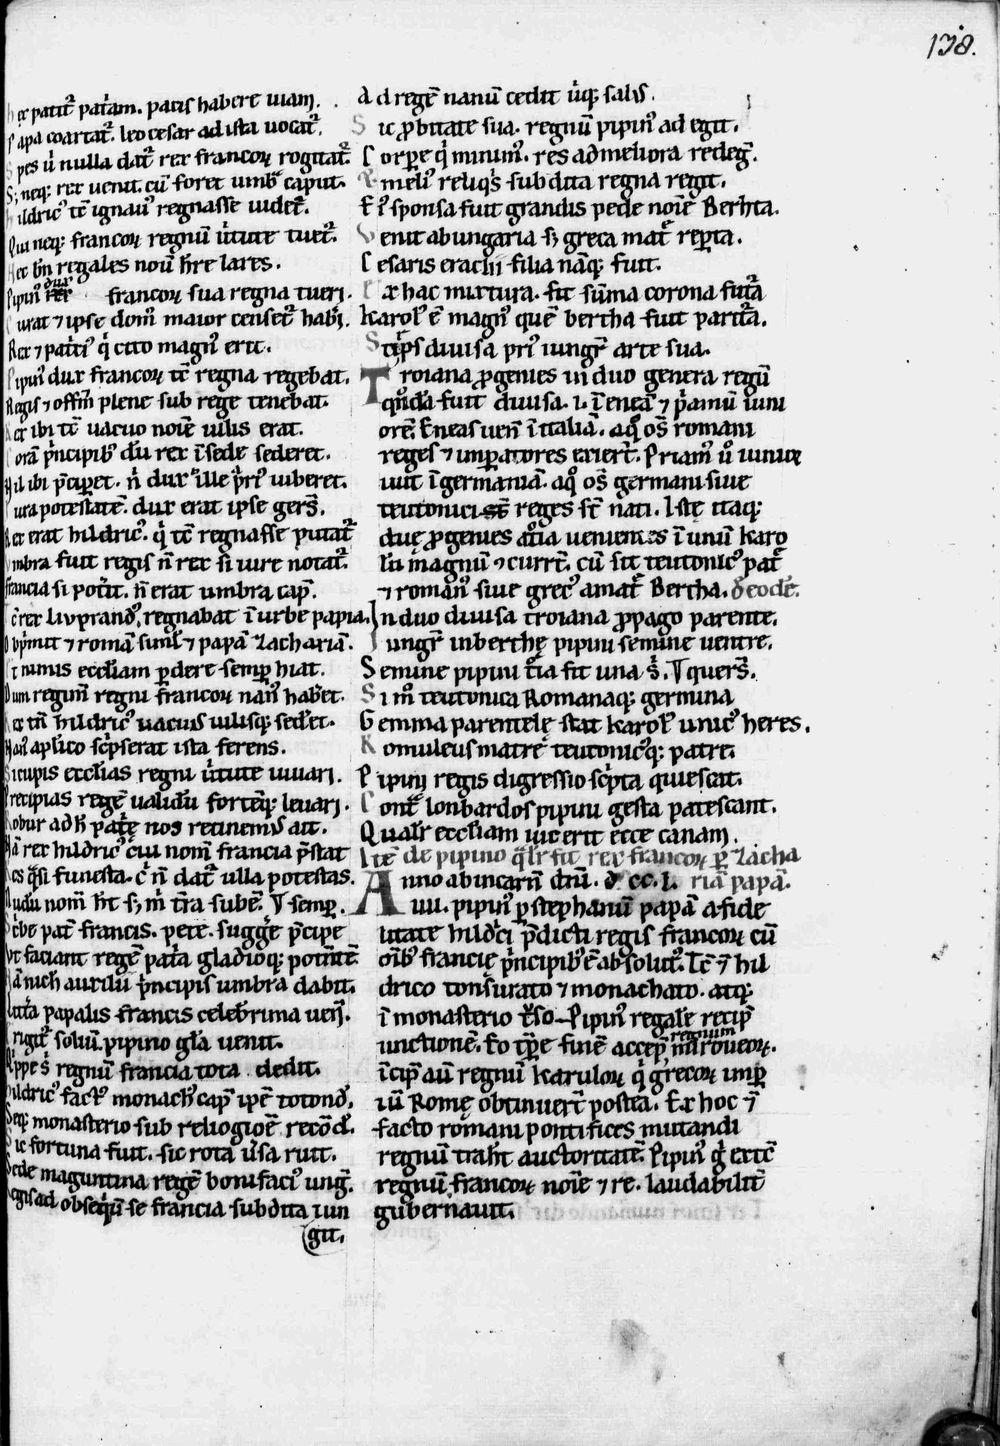 138.
h ec patit᷑ pat᷑am. pacis habere uiam.
P apa coartat᷑. leo cesar ad ista uocat᷑.
S pes ů nulla dat᷑ rex francoꝝ rogitat᷑.
S; neq; rex uenit. cū foret umb᷑ caput.
h ildric᷒ tc̄ ignau᷒ regnasse uidet᷑.
Qui neq; francoꝝ regnū ů̇tute tuet᷑.
Nec bn̄ regales nouit h̄re lares.
Pipin᷒ dux francoꝝ sua regna tueri.
C urat ⁊ ipse dom᷒ maior censet᷑ haberi.
Rex ⁊ pat᷑ci᷒ q̇ cito magn᷒ erit.
Pipin᷒ dux francoꝝ tc̄ regna regebat.
Regis ⁊ offm̄ plene sub rege tenebat.
Rex ibi tc̄ uacuo noīe uilis erat.
C orā ṗncipib᷒ dū rex ī sede sederet.
Nil ibi p̄ciperet. n̄ dux ille ṗr᷒ iuberet.
I ura potestatē. dux erat ipse gerēs.
Rex erat hildric᷒. q̇ tc̄ regnasse putat᷑
Vmbra fuit regis n̄ rex si iure notat᷑.
francia si pot᷑it. n̄ erat umbra cap᷒.
Tc̄ rex liuprand᷒. regnabat ī urbe papia.
Opp̄mit ⁊ romā siml̄ ⁊ papā Zachariā.
Et nimis eccl̄iam ꝑdere semꝑ hiat.
Dum regim̄ regni francoꝝ nan᷒ haberet.
Rex tn̄ hildric᷒ uacuus uilisq; sederet.
Nan᷒ apl̄ico sc̄pserat ista ferens.
Si cupis eccl̄ias regni ů̇tute iuuari.
Precipias regē ualidū fortēq; leuari.
Robur ad h̄ patrē nos retinemus ait.
Nā rex hildric᷒ cui nom̄ francia p̄stat
Res q̇si funesta. ċ n̄ dat᷑ ulla potestas.
Nudū nom̄ h̄t s; m̊ t̄ra subē. Ꝟ semꝑ.
Sc̄be pat̄ francis. pete. sugḡe p̄cipe
Vt faciant regē pat᷑a gladioq; potentē
Nā nich̄ auxilii ṗncipis umbra dabit.
Litt᷑a papalis francis celeb᷑rima uenit.
Erigit᷑ soliū. pipino gl̄a uenit.
Rippe s̄ regnū francia tota dedit.
Hildric᷒ fact᷒ monach᷒ cap᷒ ipē totond᷒.
Seq; monasterio sub religioē recōd᷒.
Sic fortuna fuit. sic rota ů̇sa ruit.
Sede maguntina regē bonifaci᷒ unḡ.
Regis ad obseq̇ū se francia subdita iun
git.
A d regē nanū cedit ůq; salus.
S ic ꝓbitate sua. regnū pipin᷒ adegit.
C orpore q̇ minim᷒. res ad meliora redeḡ.
E t meli᷒ reliq̇s subdita regna regit.
E i᷒ sponsa fuit grandis pede noīe Berhta.
V enit ab ungaria s; greca mat̄ reperta.
C esaris eraclii filia nāq; fuit.
E x hac mixtura. fit sūma corona fut᷑a
Karol᷒ ē magn᷒ quē bertha fuit parit᷑a.
S tirps diuisa pri᷒ iungit᷑ arte sua.
Troiana ꝓgenies in duo genera regū
qn̄dā fuit diuisa. .i. ī eneā ⁊ ṗamū iuni
orē. Eneas uen̄ ī italiā. a quo os̄ romani
reges ⁊ imperatores exier̄t. Priam᷒ ů iunior
iuit ī germaniā. a quo os̄ germani siue
teutonici. reges st̄ nati. Istę itaq;
duę ꝓgenies at᷑ia uenientes ī unū karo
lū magnū ⁊currt̄. cū sit teutonic᷒ pat̄
⁊ roman᷒ siue grec᷒ a mat̄ Bertha. De eodē.
In duo diuisa troiana ꝓpago parente.
I ungit᷑ in berthę pipini semine uentre.
S emine pipini t᷑ia fit una s̄. Ꝟ queis̄.
S im᷒ teutonica Romanaq; germina
G emma parentelę stat karol᷒ unic᷒ heres.
R omuleus matre teutonic᷒q; patre.
P ipini regis digressio sc̄pta quiescat.
C ont̄ lonbardos pipini gesta patescant.
Q ualit̄ eccl̄iam iuuerit ecce canam.
Itē de pipino q̇lit̄ fit rex francoꝝ ꝑ Zacha
riā papā.
Anno ab incarn̄ dn̄i. d. cc. l.
iiii. pipin᷒ ꝑ stephanū papā a fide
litate hild᷑ci p̄dicti regis francoꝝ cū
oīb᷒ francię ṗncipib᷒ ē absolut᷒. Tc̄ ⁊ hil
drico tonsurato ⁊ monachato. atq;
ī monasterio t᷑so. Pipin᷒ regale recip̄
unctionē. Eo tꝑe finē accep̄ regnum maroueoꝝ.
īcip̄ aū regnū karuloꝝ q̇ grecoꝝ imꝑ
iū Romę obtinuer̄t postea. Ex hoc ⁊
facto romani pontifices mutandi
regnū traht̄ auctoritatē. Pipin᷒ g̊ extc̄
regnū francoꝝ noīe ⁊ re. laudabilit̄
gubernauit.